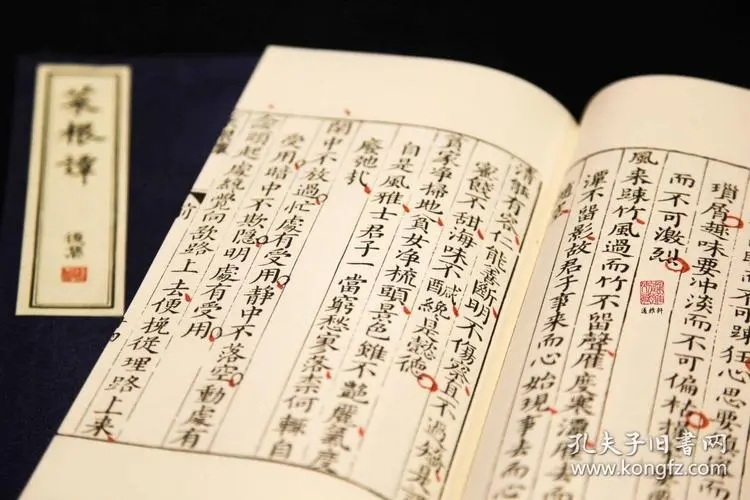 而不可踈狂心思要
瑣屑趣味要冲淡而不可偏枯
而不可激烈
風来踈竹風過而竹不留聲雁度寒潭
潭不留影故君子事来而心始現事去而心
随空
清能有容仁能善斷明不傷察直不過矯是
蜜餞不甜海味不醎纔是懿德
貧家净掃地貧女净梳頭景色雖不艷麗氣度
自是風雅士君子一當窮愁寥落柰何輒自
廢弛扎
閑中不放過忙處有受用静中不落空動處有
受用暗中不欺隱明處有受用
念頭起處纔覺向欲路上去便挽從理路上来
前
菜根譚
孔夫子旧书网
www.kongfz.com